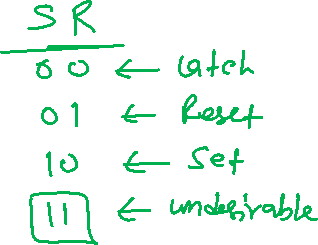 S R
0 0 ← Latch
0 1 ← Reset
1 0 ← Set
1 1 ← undesirable